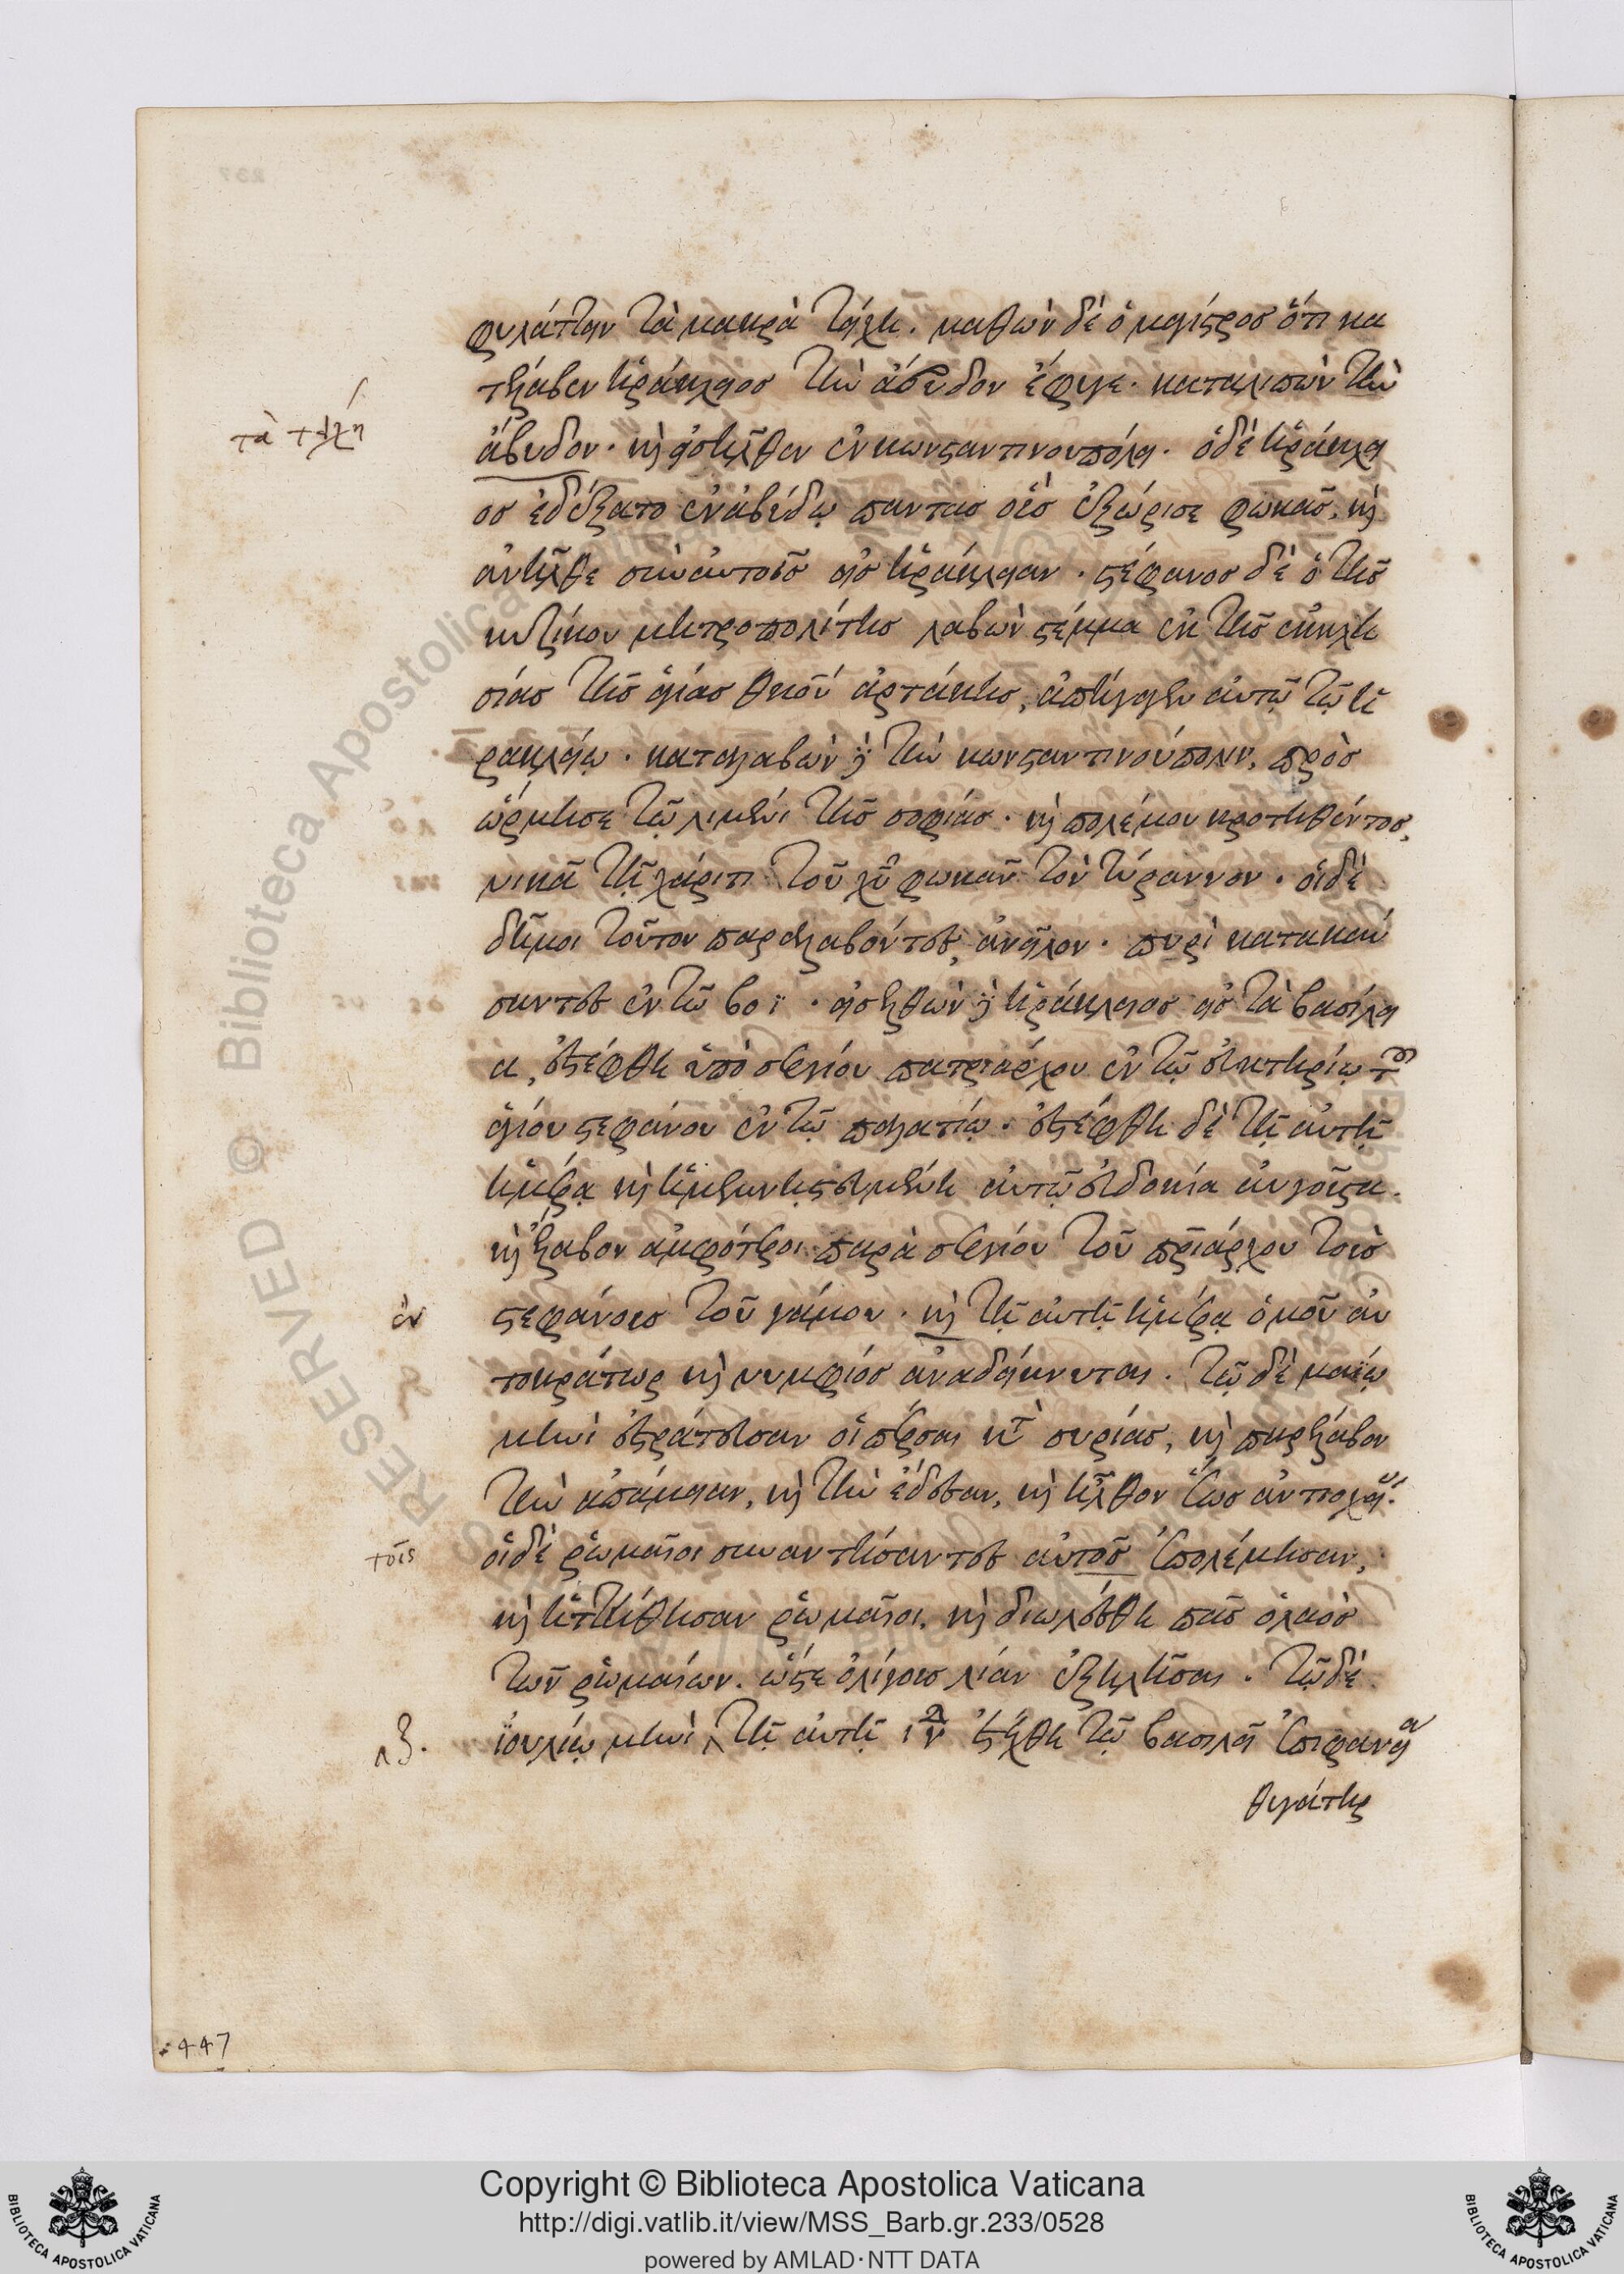 φυλάττειν τὰ μακρὰ τείχη. μαθὼν δὲ ὁ μαγίστρος ὅτι κα
τέλαβεν ἡράκλειος τὴν ἄβυδον ἔφυγε. καταλιπὼν τὴν
τὰ τείχη
ἄβυδον. καὶ εἰσῆλθεν ἐν κωνσταντινουπόλει. ὁ δὲ ἡράκλει
ος ἐδέξατο ἐν ἀβύδῳ παντας οὓς ἐξώρισε φωκᾶς, καὶ
ἀνῆλθε σὺν αὐτοῖς εἰς ἡράκλειαν. στέφανος δὲ ὁ τῆς
κυζίκου μητροπολίτης λαβὼν στέμμα ἐκ τῆς ἐκκλη
σίας τῆς ἁγίας θκου ἀρτάκης, ἀπήγαγεν αὐτῷ τῷ ἡ
ρακλείῳ. καταλαβὼν δὲ τὴν κωνσταντινούπολιν, προσ
ώρμησε τῷ λιμένι τῆς σοφίας. καὶ πολέμου κροτηθέντος,
νικᾷ τῇ χάριτι τοῦ χῦ φωκᾶν τὸν τύραννον. οἱ δὲ
δῆμοι τοῦτον παραλαβόντες, ἀνεῖλον. πυρὶ κατακαύ
σαντες ἐν τῷ βοῒ. εἰσελθὼν δὲ ἡράκλειος εἰς τὰ βασίλει
α, ἐστέφθη ὑπὸ σεργίου πατριάρχου ἐν τῷ εὐκτηρίῳ τοῦ
ἁγίου στεφάνου ἐν τῷ παλατίῳ. ἐστέφθη δὲ τῇ αὐτῇ
ἡμέρᾳ καὶ ἡ μεμνηστευμένη αὐτῷ εὐδοκία αὐγοῦστα.
καὶ ἔλαβον ἀμφότεροι παρὰ σεργίου τοῦ πριάρχου τοὺς
ἐν
στεφάνους τοῦ γάμου. καὶ τῇ αὐτῇ ἡμέρᾳ ὁμοῦ αὐ
τοκράτωρ καὶ νυμφίος ἀναδείκνυται. τῷ δὲ μαΐῳ
μηνὶ ἐστράτευσαν οἱ πέρσαι κτ συρίας, καὶ παρέλαβον
τὴν ἀπάμειαν, καὶ τὴν ἔδεσαν, καὶ ἦλθον ἕως ἀντιοχεί.
τοῖς
οἱ δὲ ῥωμαῖοι συναντήσαντες αὐτοῖς ἐπολέμησαν,
καὶ ἡττήθησαν ῥωμαῖοι, καὶ διωλέσθη πᾶς ὁ λαὸς
τῶν ῥωμαίων. ὥστε ὀλίγους λίαν ἐξειλῆσαι. τῷ δὲ
λζ.
ἰουλίῳ μηνὶ τῇ αὐτῇ ιν ἐτέχθη τῷ βασιλεῖ ἐπιφανεία
θυγάτηρ
447
Copyright © Biblioteca Apostolica Vaticana
http://digi.vatlib.it/view/MSS_Barb.gr.233/0528
powered by AMLAD·NTT DATA
BIBLIOTECA APOSTOLICA VATICANA
BIBLIOTECA APOSTOLICA VATICANA